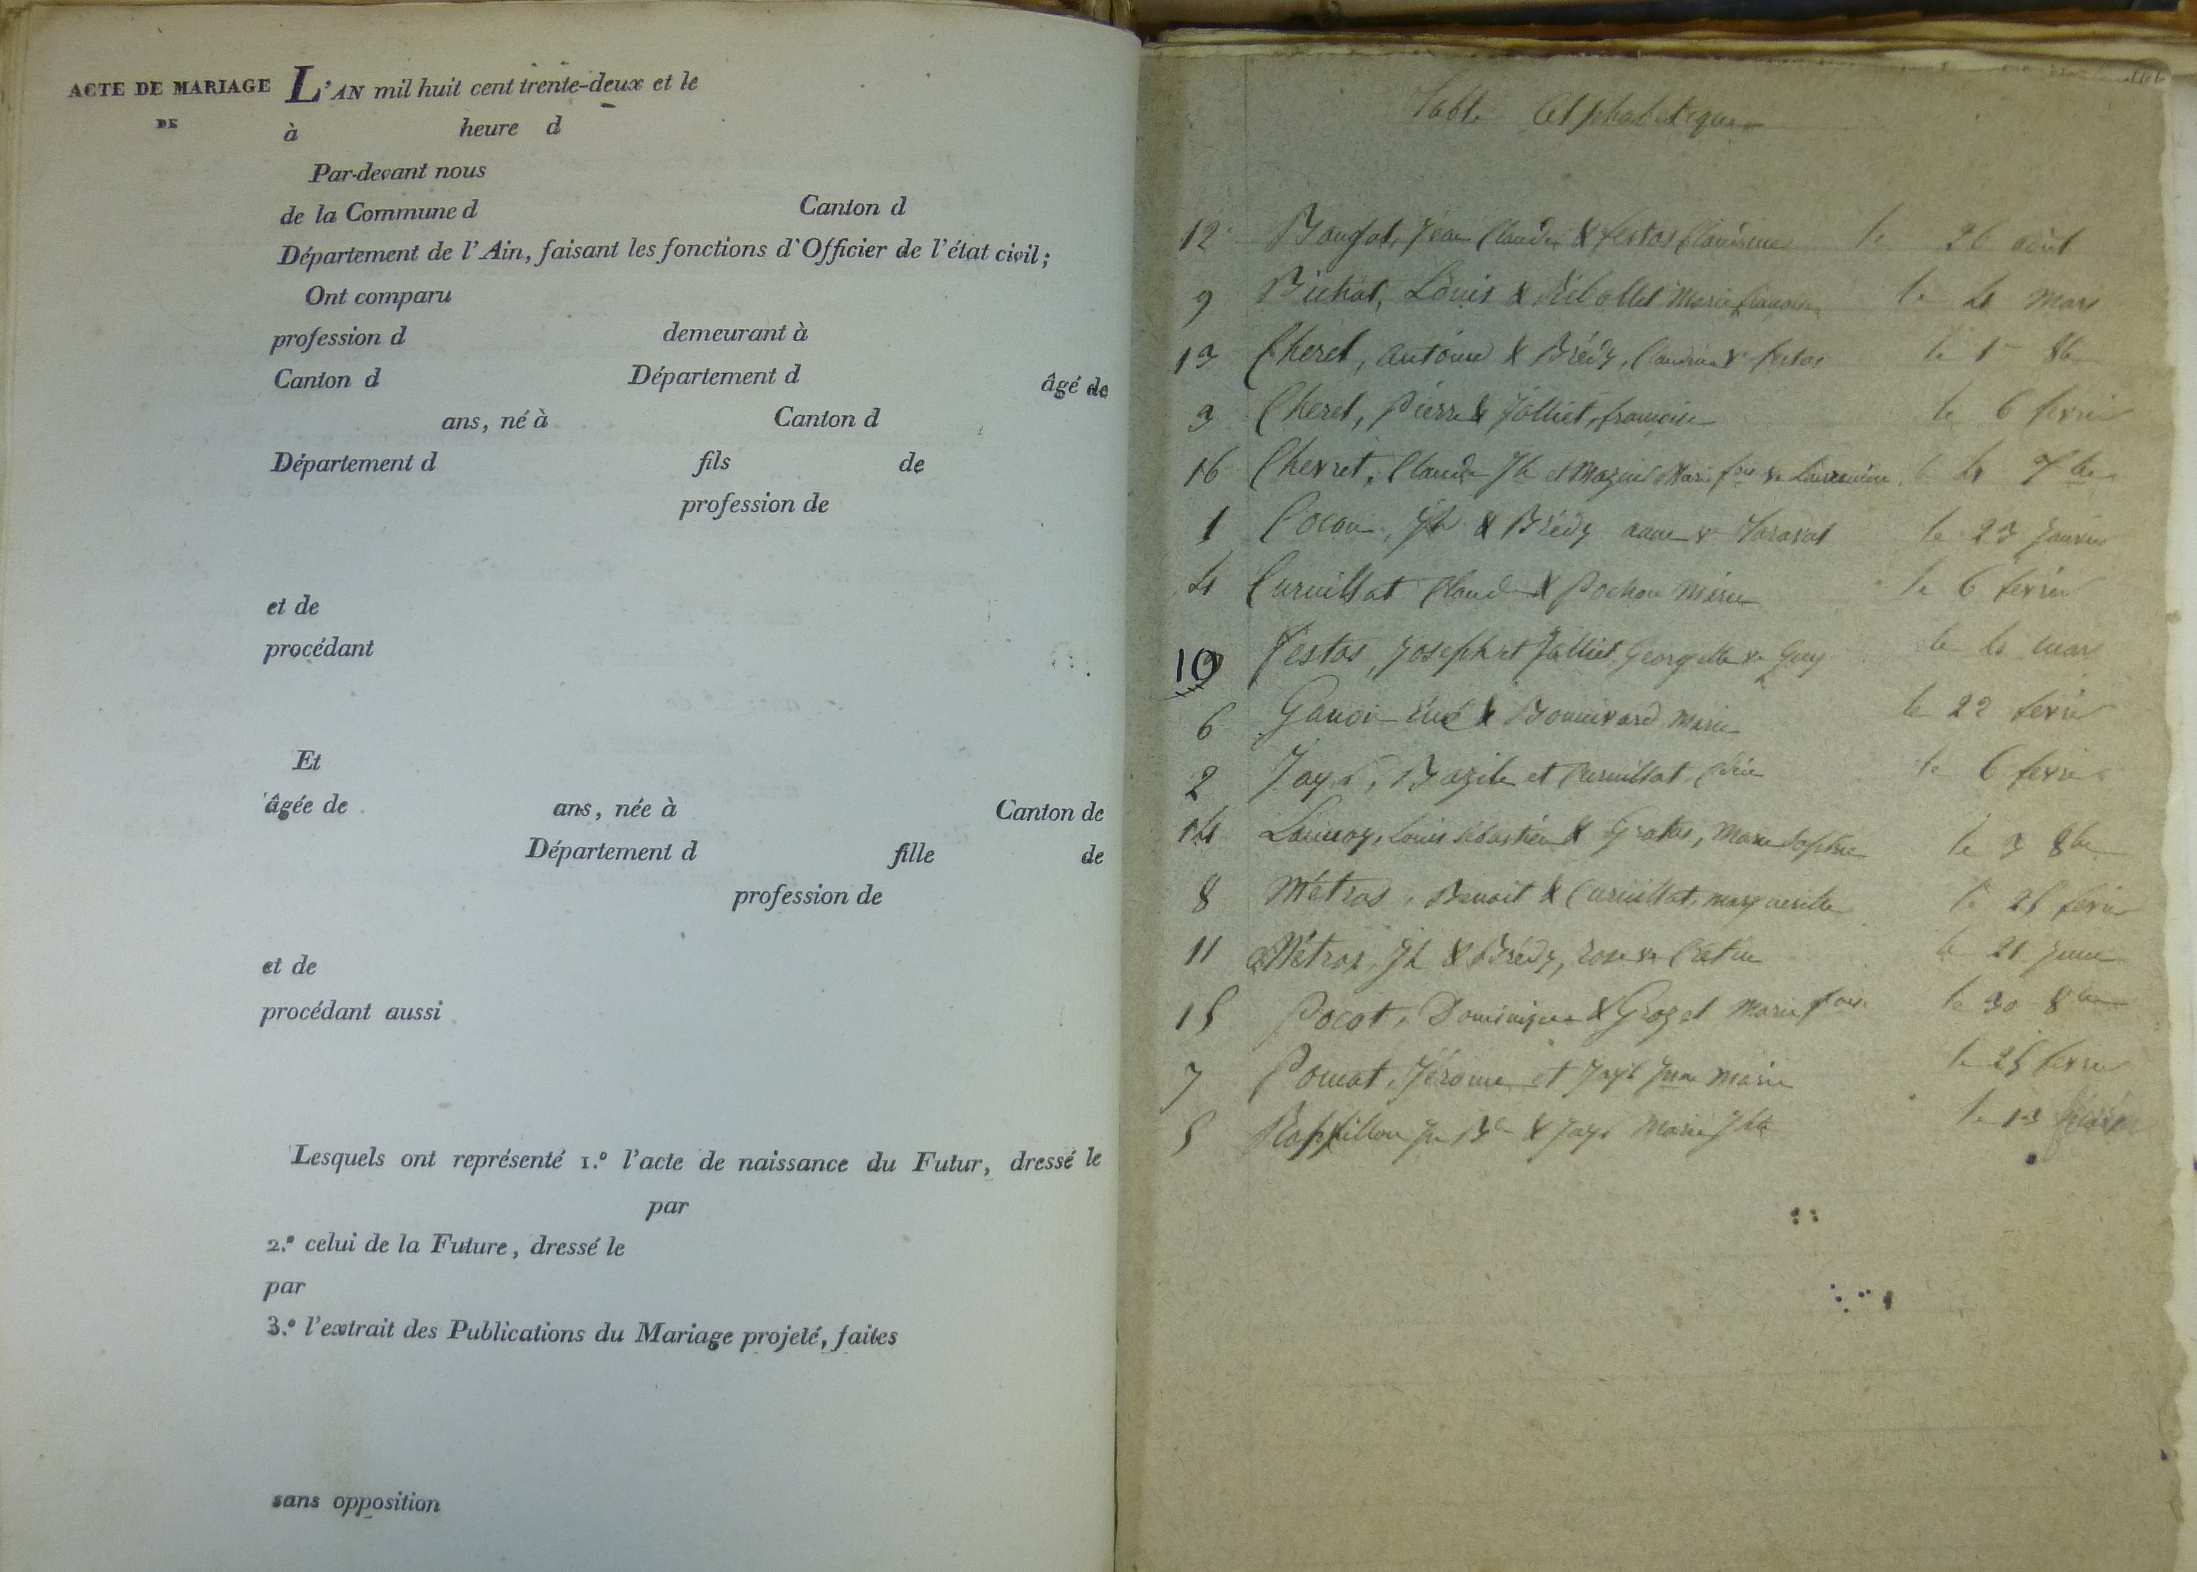 ACTE DE MARIAGE L'AN mil huit cent trente-deux et le
DE
à heure d
Par-devant nous
de la Commune d Canton d
Département de l'Ain, faisant les fonctions d'Officier de l'état civil;
Ont comparu
profession d demeurant à
Canton d Département d âgé de
ans, né à Canton d
Département d fils de
profession de
et de
procédant
Et
âgée de ans, née à Canton de
Département d fille de
profession de
et de
procédant aussi
Lesquels ont représenté 1.º l'acte de naissance du Futur, dressé le
par
2.º celui de la Future, dressé le
par
3.º l'extrait des Publications du Mariage projeté, faites
sans opposition
Table Alphabetique
12 Jean Claude & festas le 26 août
9 Bichat, Louis & Ribollet Marie françoise le 4 mars
13 Cheret, antoine & Brédy, Claudine ve festas le 1er 8bre
3 Cheret, Pierre & Jolliet, françoise le 6 fevrier
16 Chevret, Claude Jh et Mazuir Marie fse ve le 4 7bre
1 Cocon, Jh & Brédy anne ve le 23 Janvier
4 Curvillat Claude & Pochon Marie le 6 fevrier
10 festas, Joseph et Jolliet Georgette ve Guy le 4 mars
6 & Bonnivard Marie le 22 fevrier
2 Jayr, Bazile et Curvillat le 6 fevrier
14 Launay, Louis Sébastien & Gratas, Marie Sophie le 3 8bre
8 Métras, Benoit & Curvillat, marguerite le 25 fevrier
11 Métras, Jh & Brédy, rose ve le 21 Juin
15 Pocat, Dominique & Grozet Marie fse le 30 8bre
7 Pomat, Jérome et Jayr Jne Marie le 25 fevrier
5 Rappillon & Jayr Marie Jhte le 13 fevrier